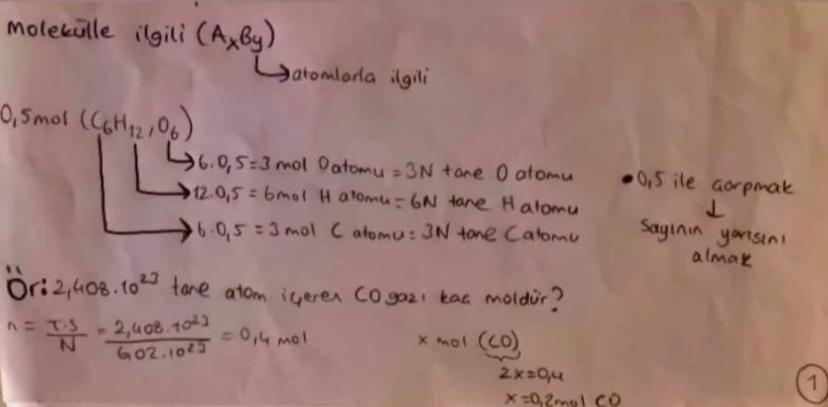 Molekülle ilgili (AxBy)
↳atomlarla ilgili
0,5mol (C6H12,O6)
→6.0,5=3 mol O atomu = 3N tane O atomu
→12.0,5 = 6mol H atomu = 6N tane H atomu
→6.0,5 = 3 mol C atomu = 3N tane C atomu
•0,5 ile çarpmak
↓
Sayının yarısını
almak
Ör: 2,408.10²³ tane atom içeren CO gazı kaç moldür?
n = T.S/N = 2,408.10²³/6,02.10²³ = 0,4 mol
x mol (CO)
2x=0,4
x=0,2mol CO
1